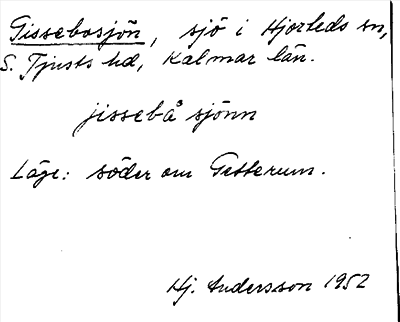 Gissebosjön, sjö i Hjorteds sn,
S. Tjusts hd, Kalmar län.
jissebå sjönn
Läge: söder om Getterum.
Hj. Andersson 1952